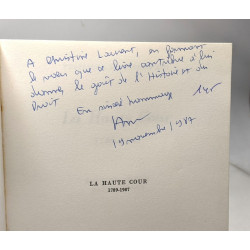 A Christine Laurent, en formant
le vœu que ce livre contribue à lui
donner le goût de l'Histoire et du
Droit
En hommage
19 novembre 1987
LA HAUTE COUR
1789-1987